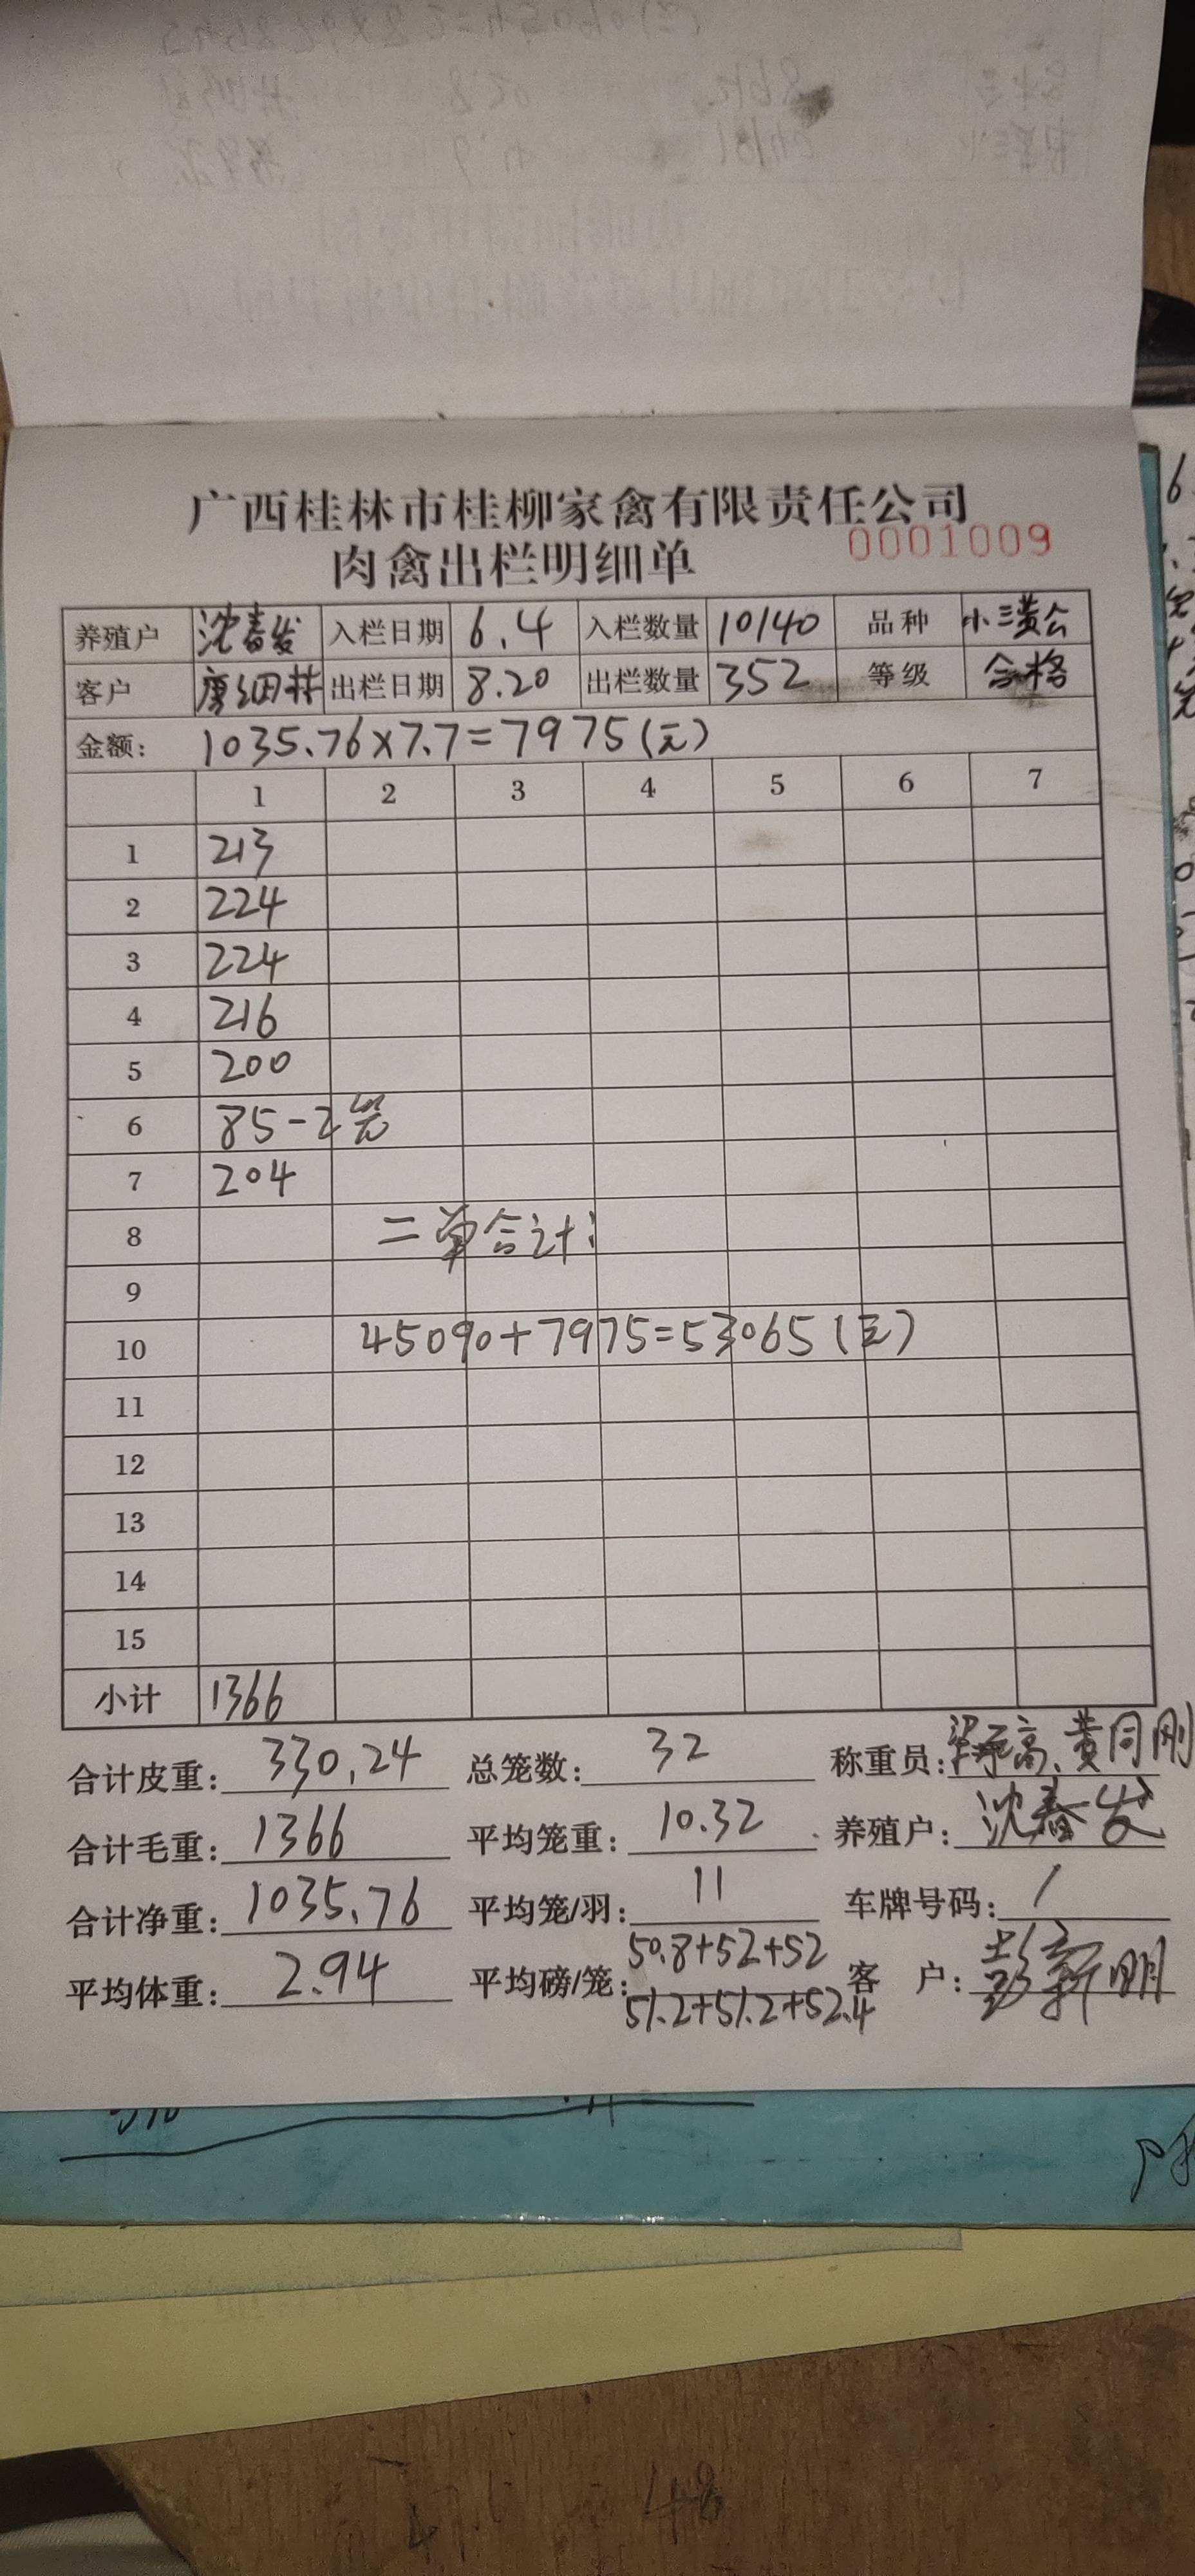 广西桂林市桂柳家禽有限责任公司
肉禽出栏明细单 0001009
养殖户 沈春发 入栏日期 6.4 入栏数量 10140 品种 小三黄公
客户 唐细井 出栏日期 8.20 出栏数量 352 等级 合格
金额: 1035.76×7.7=7975(元)
1 2 3 4 5 6 7
1 213
2 224
3 224
4 216
5 200
6 85-2笼
7 204
8 二单合计:
9
10 45090+7975=53065(元)
11
12
13
14
15
小计 1366
合计皮重: 330.24 总笼数: 32 称重员: 高、黄同刚
合计毛重: 1366 平均笼重: 10.32 养殖户: 沈春发
合计净重: 1035.76 平均笼/羽: 11 车牌号码: /
平均体重: 2.94 平均磅/笼: 50.8+52+52 客 户: 彭新明
51.2+51.2+52.4
48